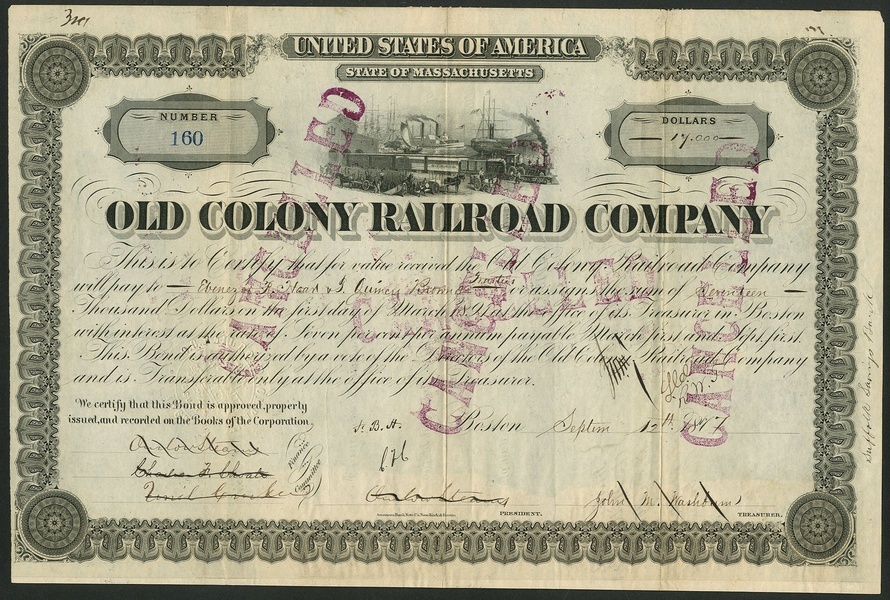 UNITED STATES OF AMERICA
STATE OF MASSACHUSETTS
NUMBER
160
DOLLARS
17.000
OLD COLONY RAILROAD COMPANY
This is to Certify that for value received the Old Colony Railroad Company
will pay to Quincy Browne Trustees or assigns the sum of Seventeen
Thousand Dollars on the first day of March at the office of its Treasurer in Boston
with interest at the rate of Seven per cent per annum payable March first and Sept. first.
This Bond is authorized by a vote of the Directors of the Old Colony Railroad Company
and is Transferable only at the office of its Treasurer.
We certify that this Bond is approved, properly
issued, and recorded on the Books of the Corporation.
Boston Septem 12th 1877
Charles F. Choate
Finance Committee
PRESIDENT.
John M. Washburn
TREASURER.
CANCELLED
CANCELLED
CANCELLED
CANCELLED
Suffolk Savings Bank